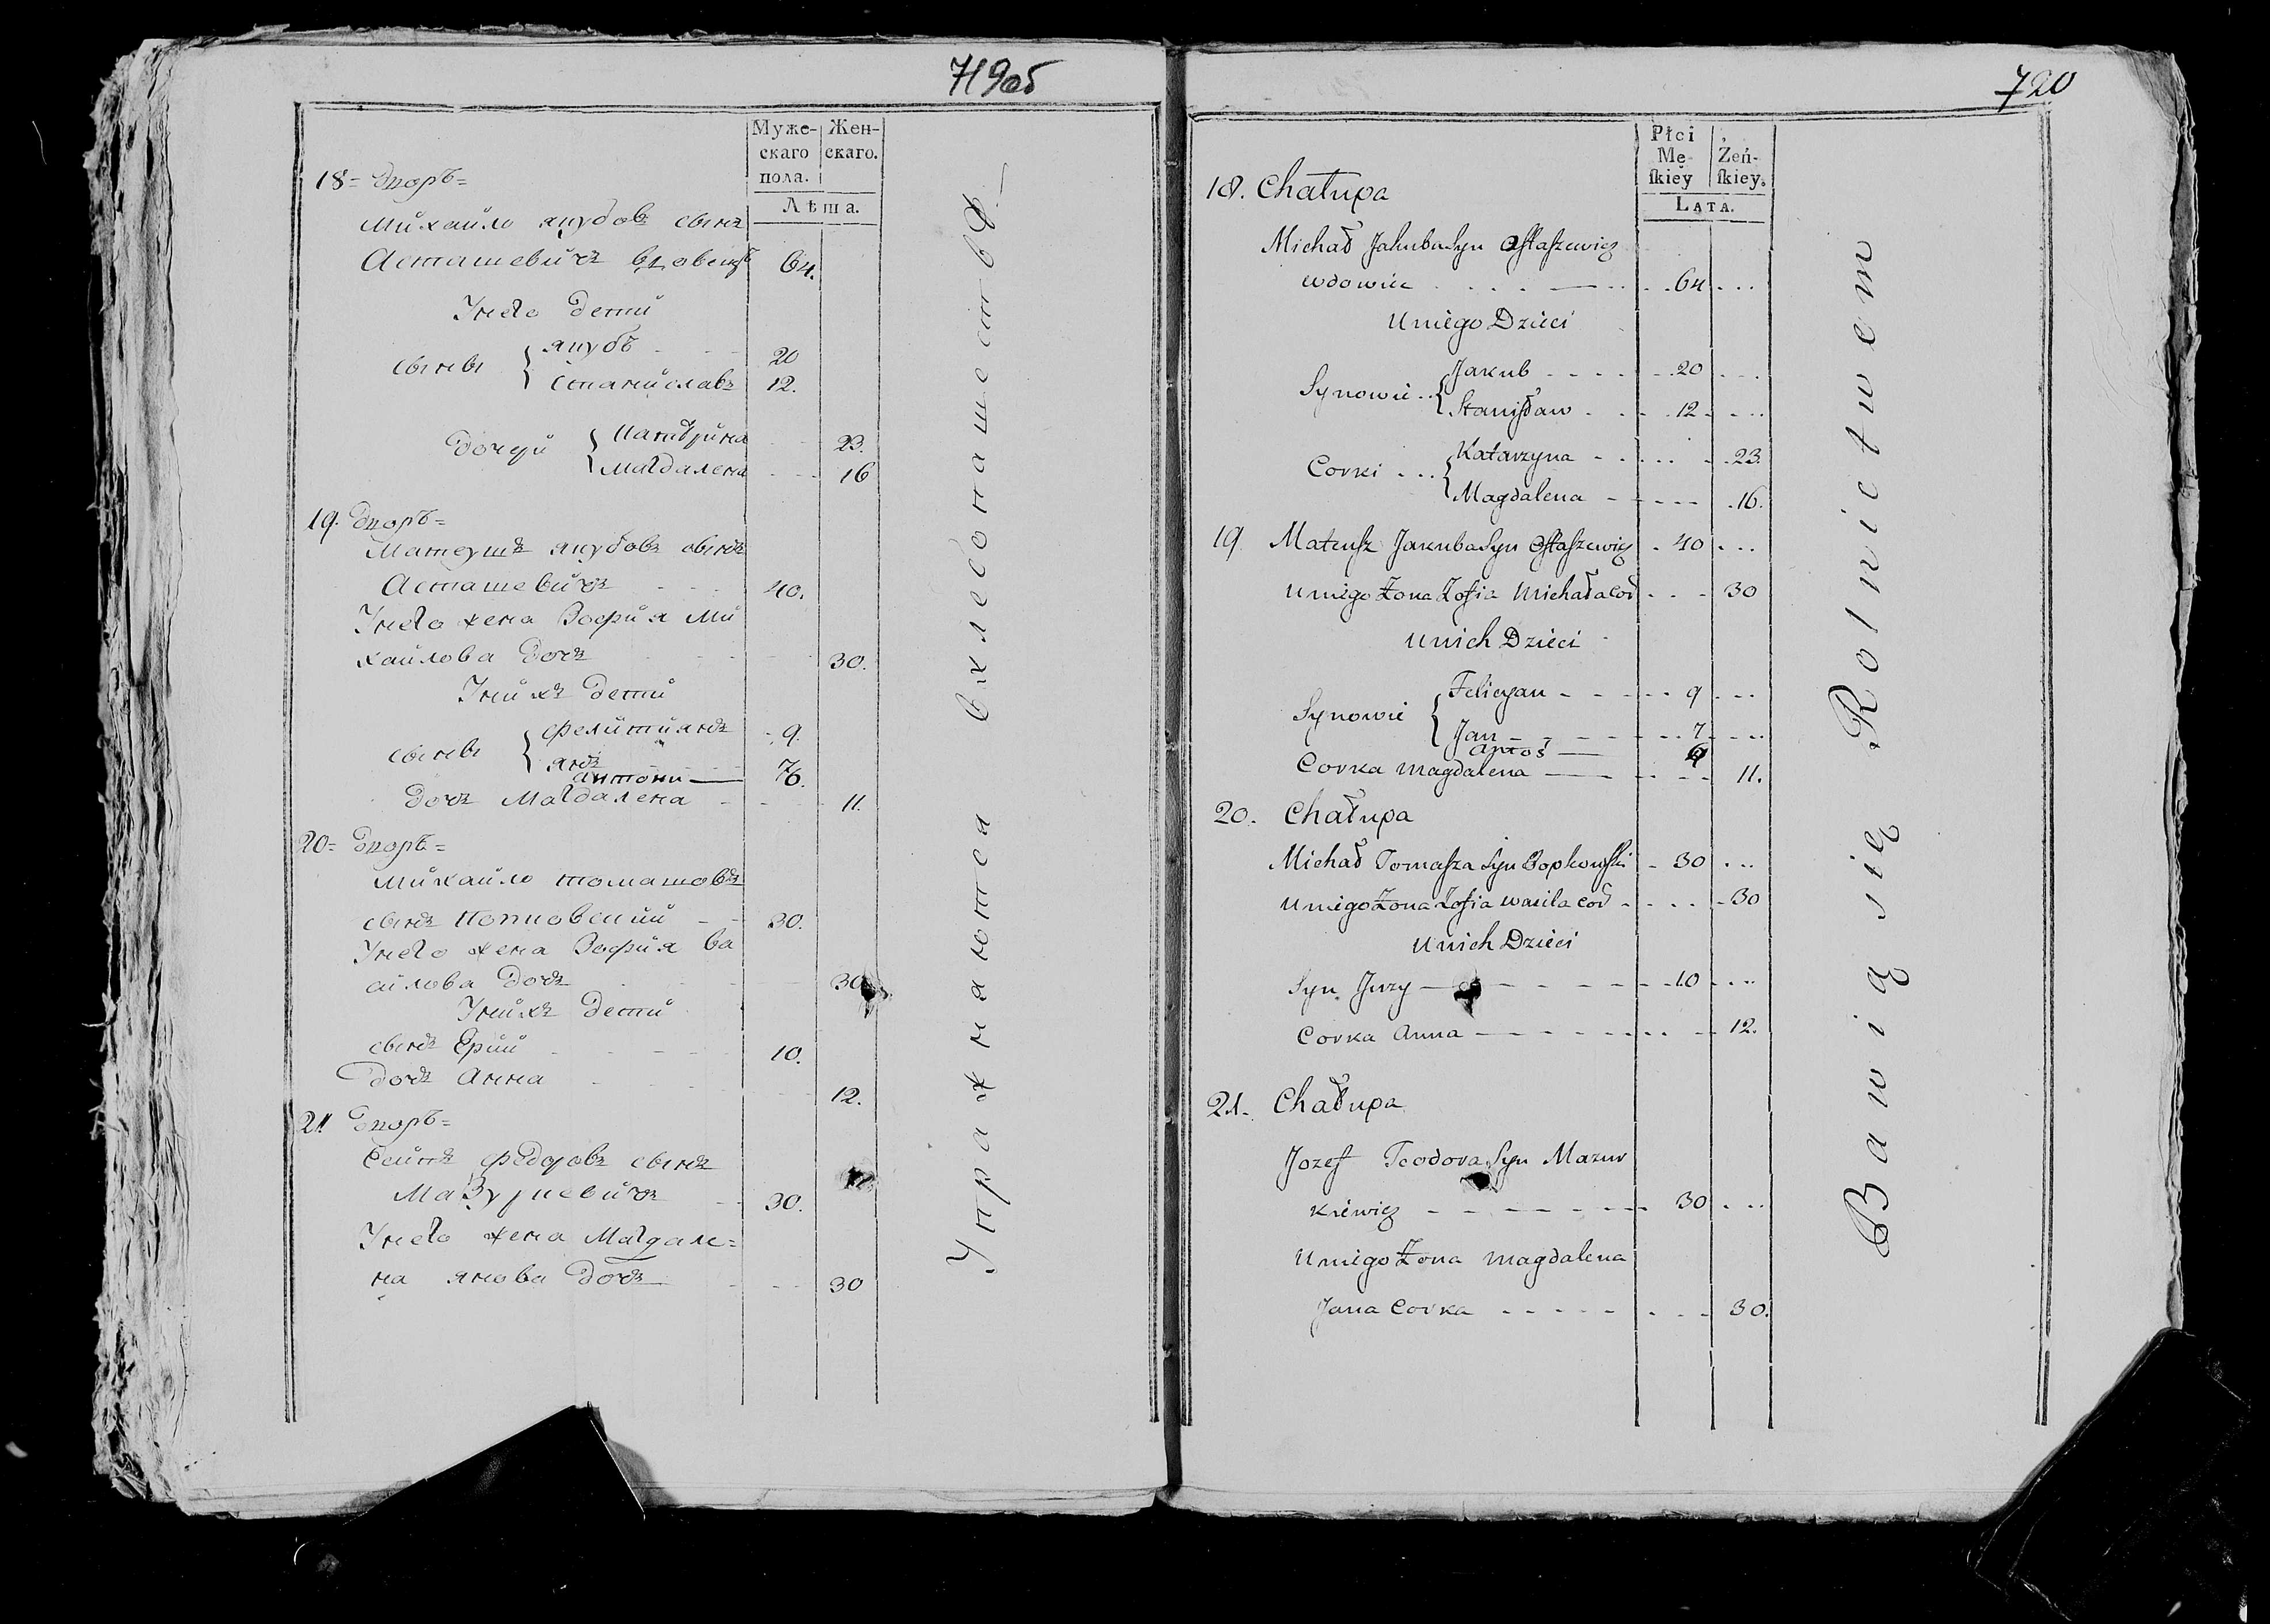 719об
Муже-
скаго
пола.
Жен-
скаго.
Лѣта.
18= Дворъ=
Михайло якубовъ сынъ
Асташевичъ вдовецъ 64.
Унего дети
сыны { якубъ 20
Станиславъ 12.
дочери { Катаржина 23.
Магдалена 16
19. Дворъ=
Матеушъ якубовъ сынъ
Асташевичъ 40.
Унего жена Зофия Ми
хайлова дочь 30.
Унихъ дети
сыны { Фелитиянъ 9.
янъ 7
антони 6.
дочь Магдалена 11.
20= Дворъ=
Михайло томашовъ
сынъ Попковский 30.
Унего жена Зофия ва
силова дочь 30
Унихъ дети
сынъ Ерий 10.
дочь Анна 12.
21 Дворъ=
Федоровъ сынъ
Мазуркевичъ 30.
Унего жена Магдале=
на янова дочь 30
Упражняются вхлебопашестве
720
Płci
Mę-
skiey
Żeń-
skiey.
LATA.
18. Chałupa
Michał Jakuba Syn Ostaszewicz
wdowiec 64
U niego Dzieci
Synowie { Jakub 20
Stanisław 12
Corki { Katarzyna 23.
Magdalena 16.
19 Mateusz Jakuba Syn Ostaszewicz 40
U niego Żona Zofia Michała Cor 30
U nich Dzieci
Synowie { Felicyan 9
Jan 7
Antos 6
Corka Magdalena 11.
20. Chałupa
Michał Tomasza Syn Bopkowski 30
U niego Żona Zofia Wasila Cor 30
U nich Dzieci
Syn Jurzy 10
Corka Anna 12.
21. Chałupa
Jozef Teodora Syn Mazur
kiewicz 30
U niego Żona Magdalena
Jana Corka 30.
Bawią się Rolnictwem